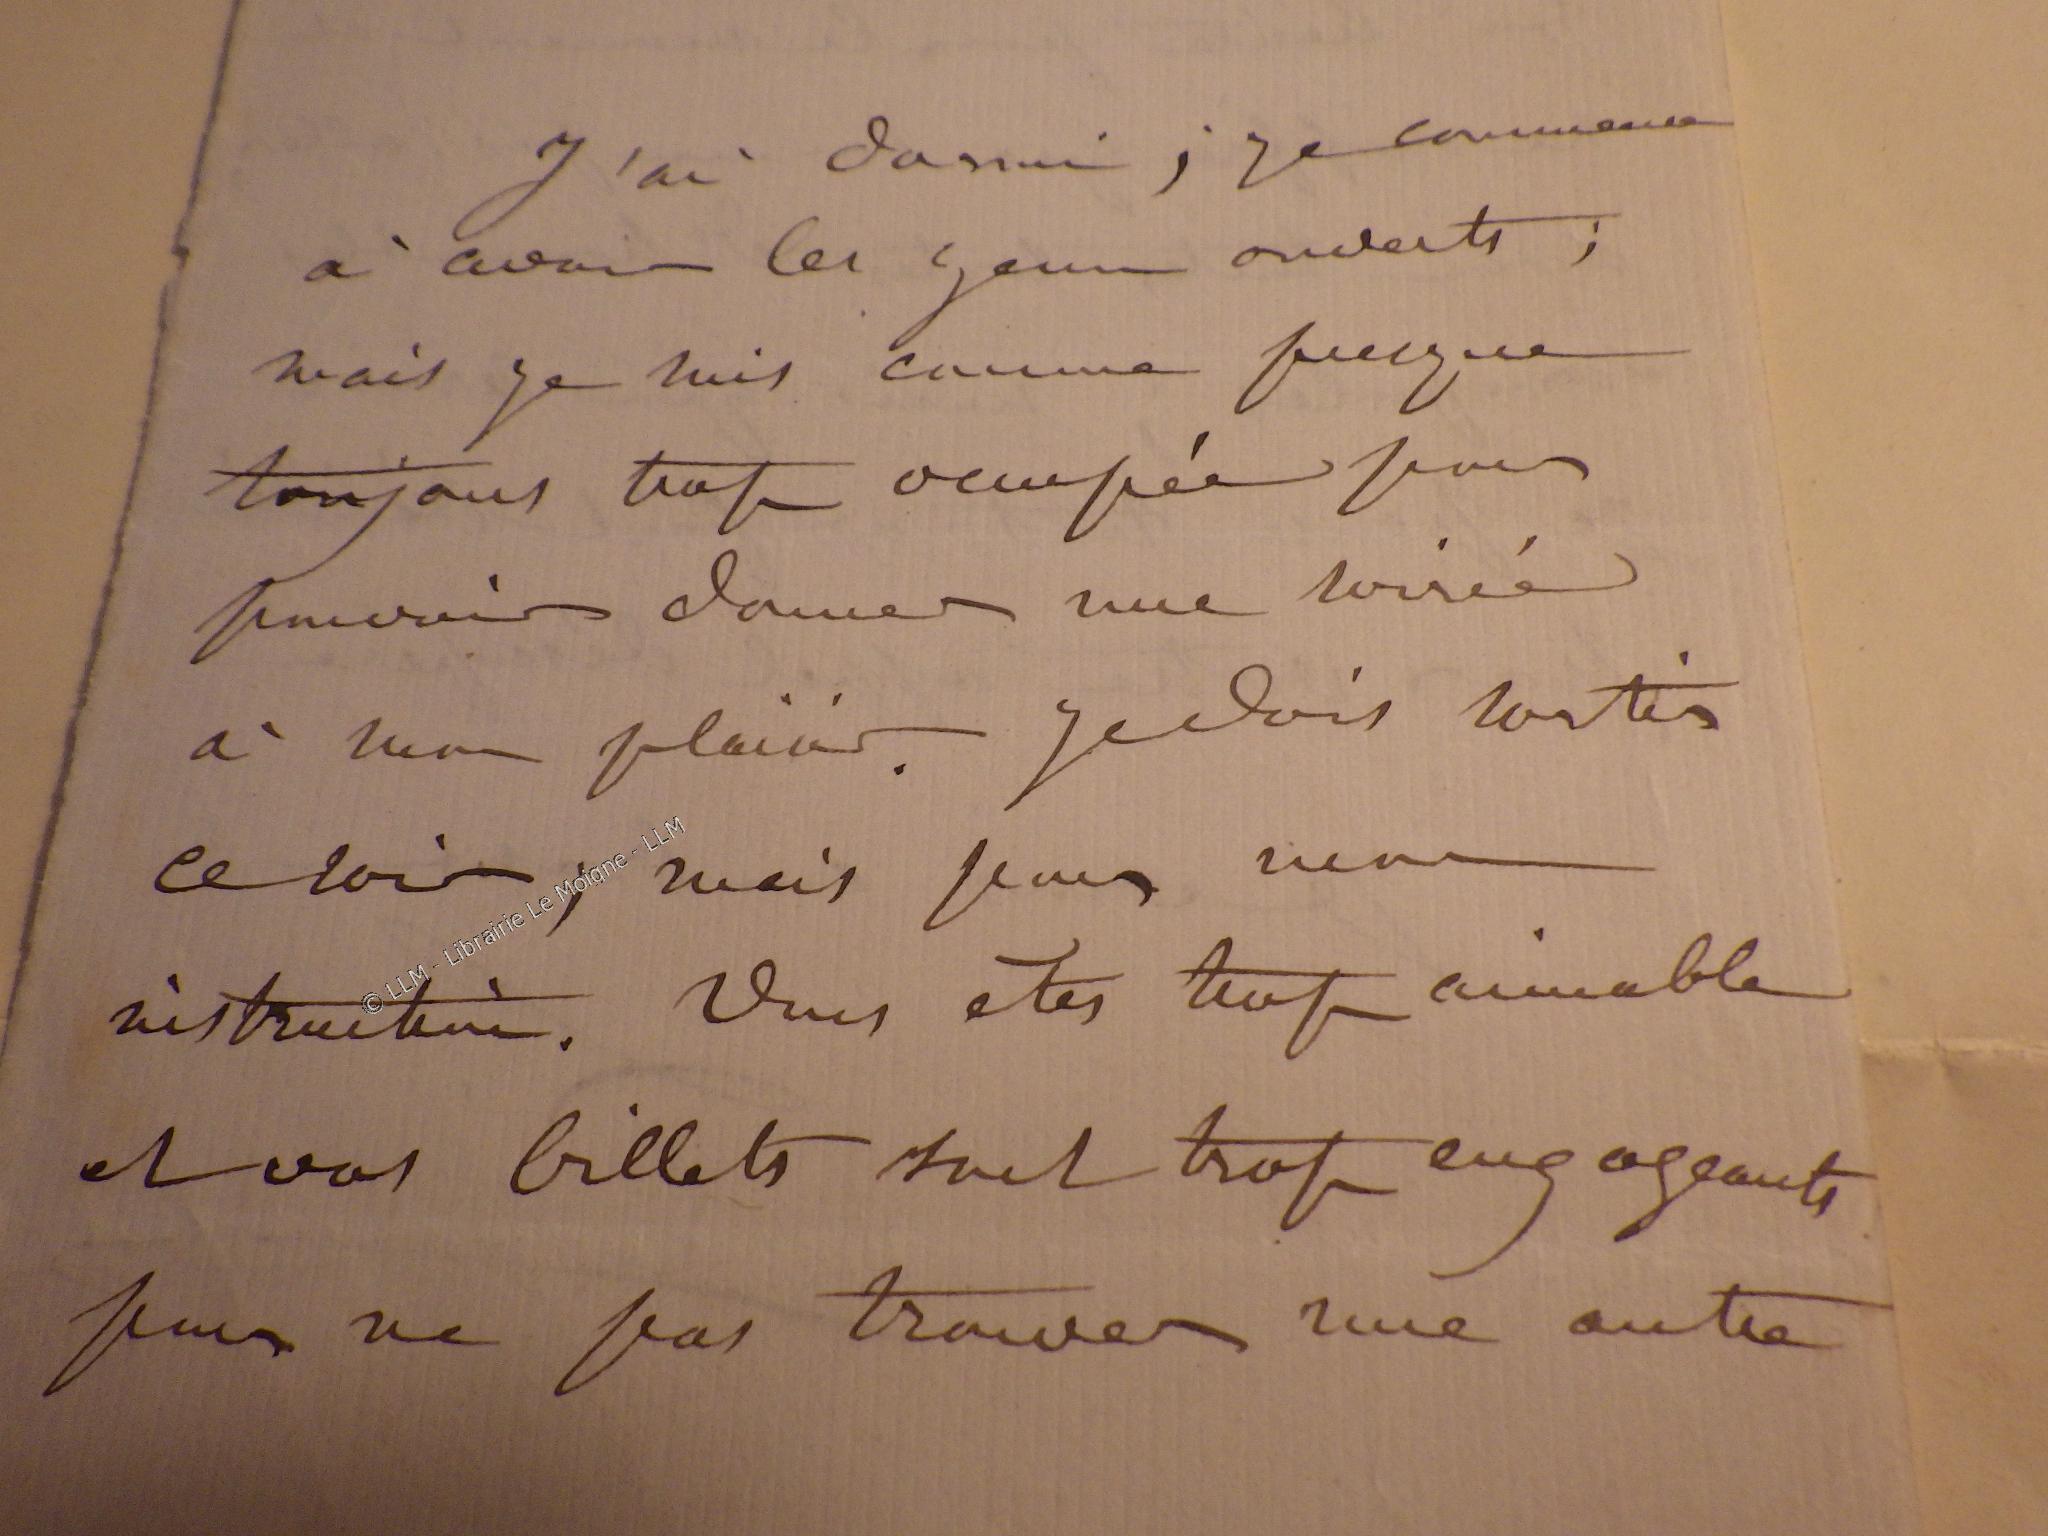 J'ai dormi ; je commence
à avoir les yeux ouverts ;
mais je suis comme presque
toujours trop occupée pour
pouvoir donner une soirée
à mon plaisir. Je dois sortir
ce soir ; mais pour mon
instruction. Vous êtes trop aimable
et vos billets sont trop engageants
pour ne pas trouver une autre
© LLM - Librairie Le Moigne - LLM